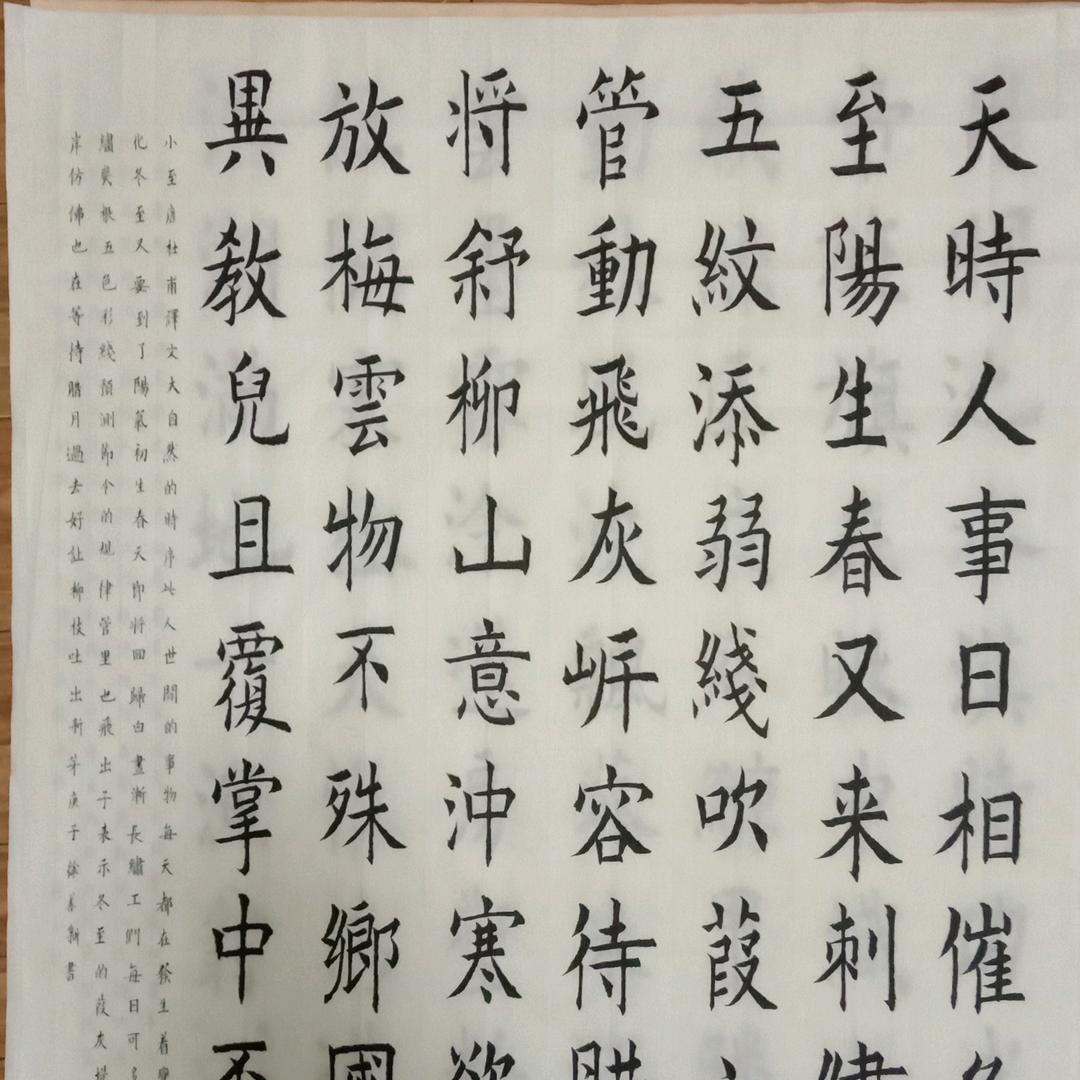 天時人事日相催冬
至陽生春又来刺繡
五紋添弱綫吹葭六
管動飛灰岸容待腊
将舒柳山意沖寒欲
放梅雲物不殊鄉國
異教兒且覆掌中杯
小至唐杜甫譯文大自然的時序此人世間的事物每天都在發生着變
化冬至又要到了陽氣初生春天即将回歸白晝漸長繡工們每日可多
繡幾根五色彩綫預測節令的規律管里也飛出于表示冬至的葭灰堤
岸仿佛也在等待腊月過去好讓柳枝吐出新芽庚子徐新書